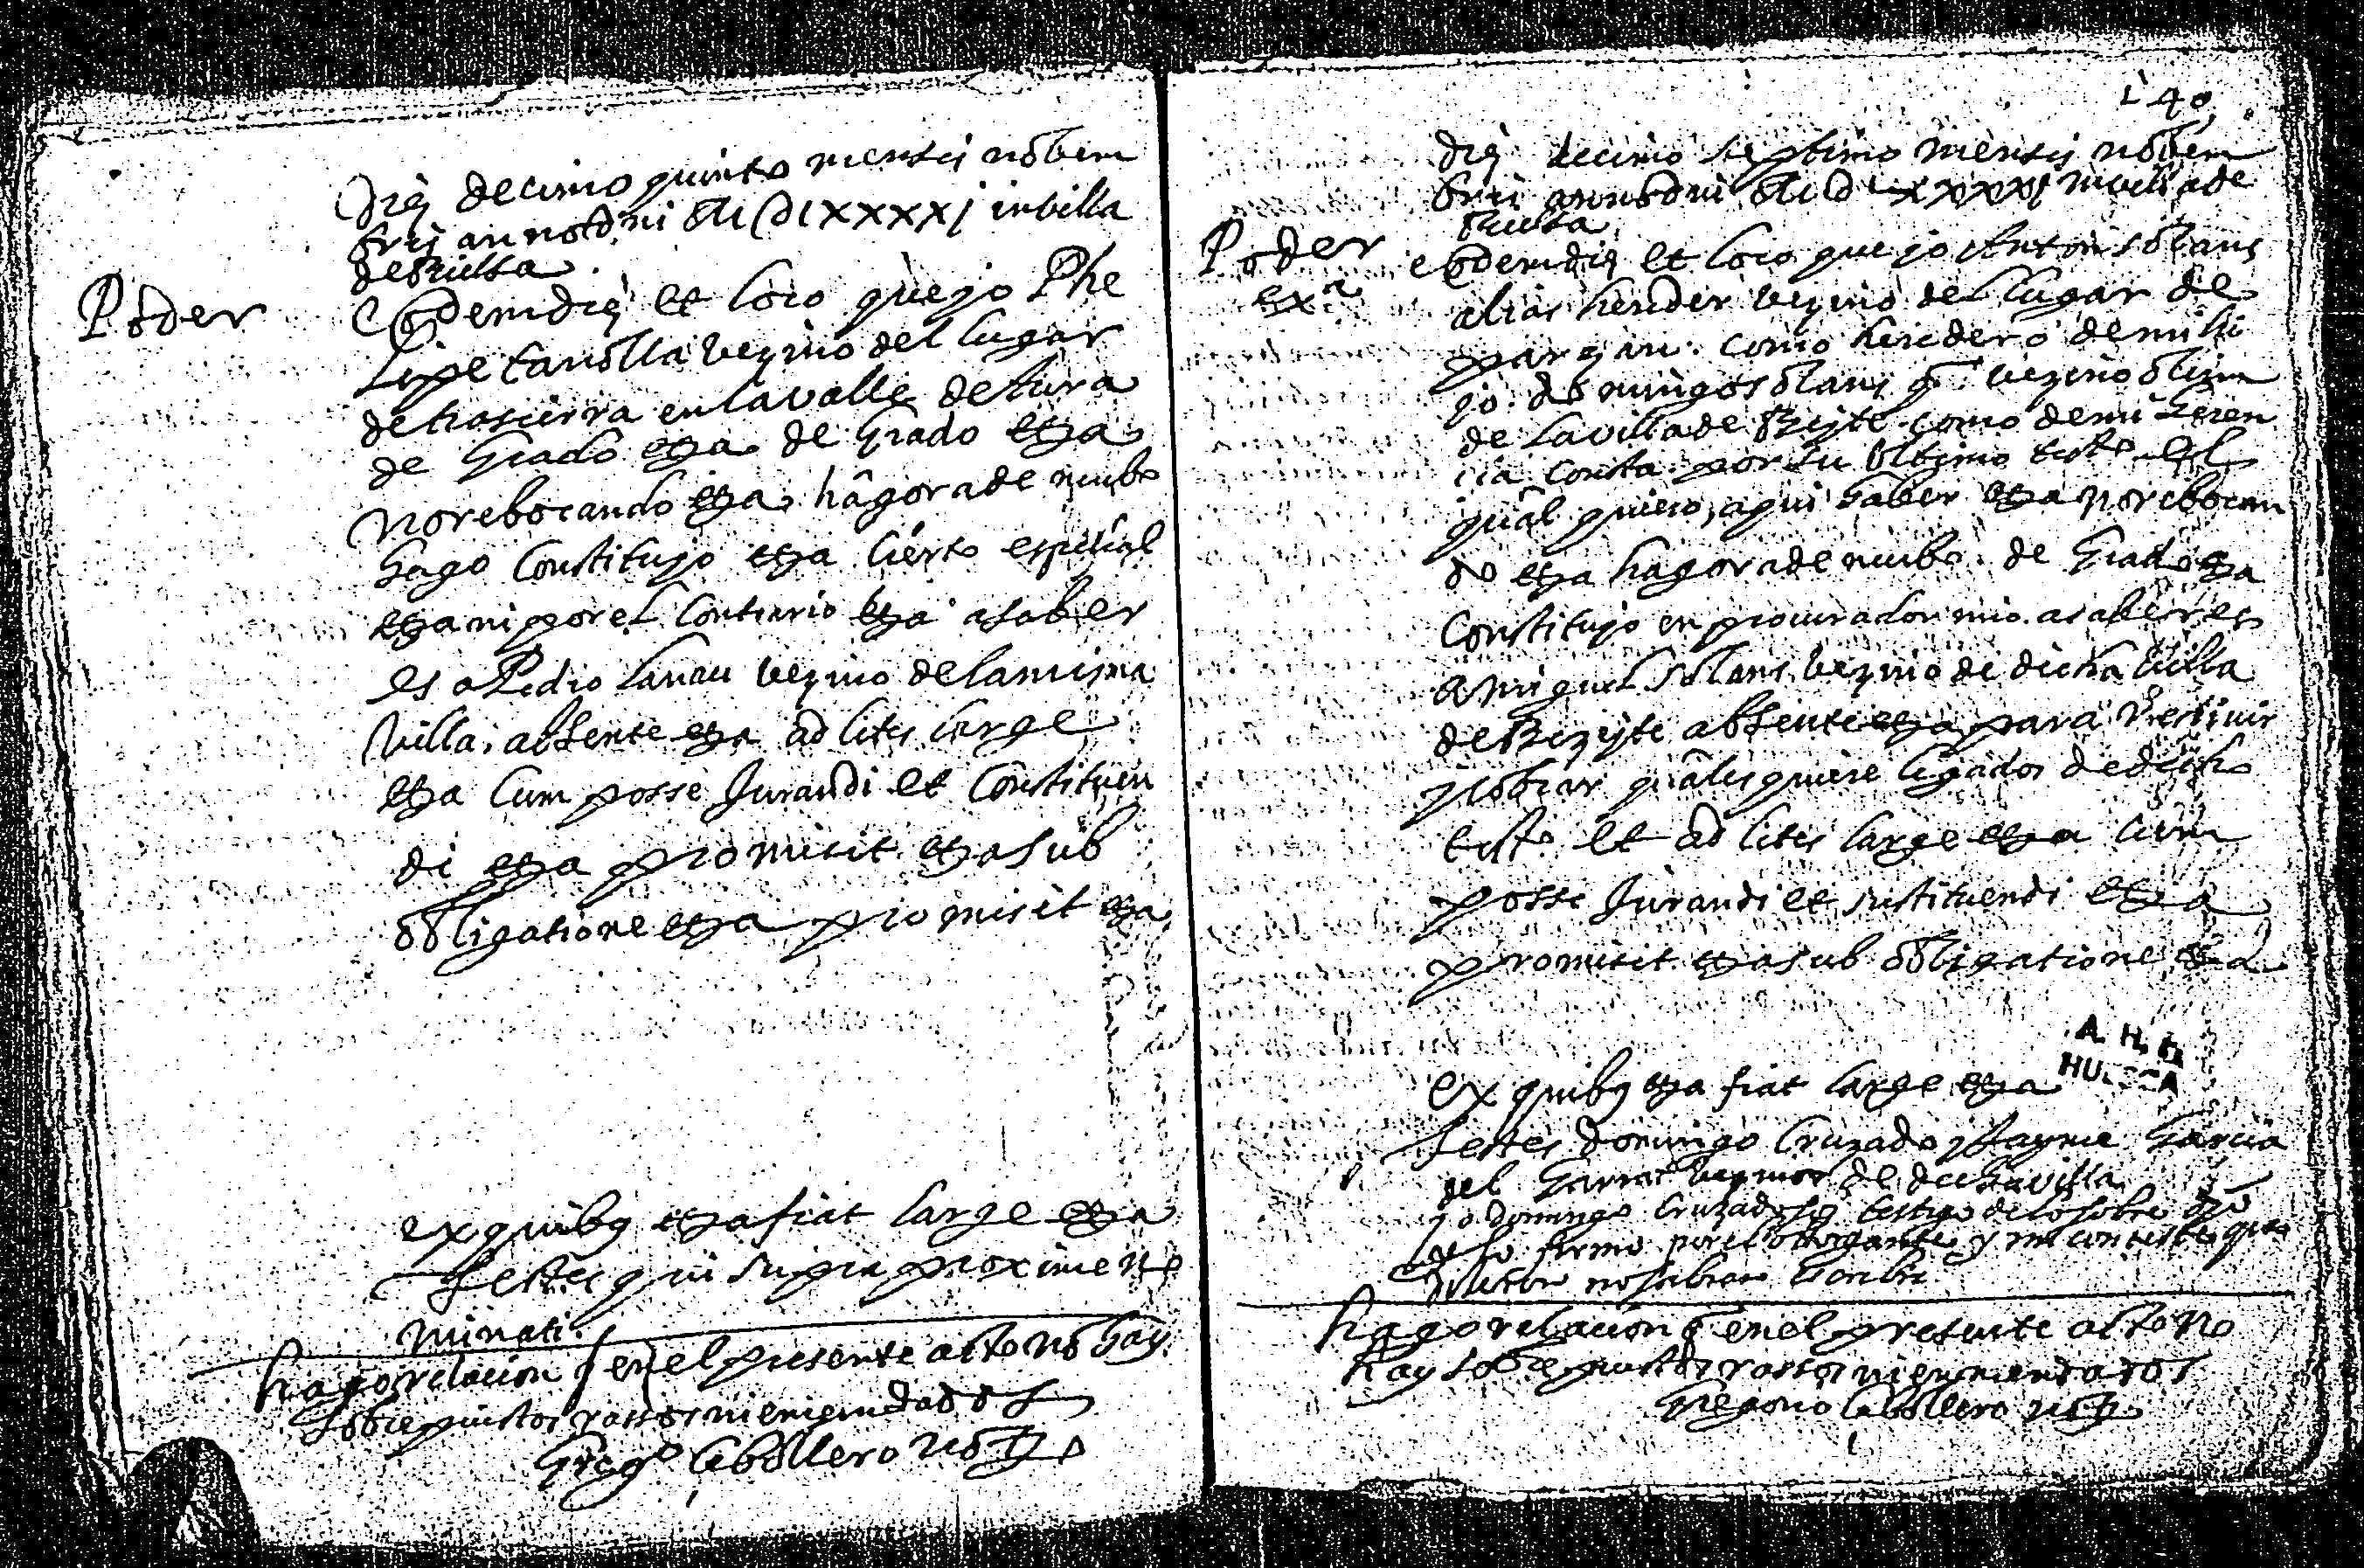 Die decimo quinto mensis nobem
bris anno dni M D LXXXXj in villa
de Bielsa
Poder
Eodem die et loco que jo Phe
lipe Lanolla vezino del lugar
de trasierra en la valle de tura
de Grado etza de Grado etza
no rebocando etza hâgora de nuebo
hago Constitujo etza cierto espeçial
etza ni por el Contrario etza a saber
es a Pedro Lanau vezino de la misma
Villa, absente etza ad lites large
etza Cum posse Jurandi et Constituen
di etza promisit etza sub
obligatione etza promisit etza
ex quibus etza fiat large etza
Testes qui supra proxime no
minati.
hago relacion q en el presente acto no hay
sobrepuestos rassos ni enmendados
Grego Cabollero notº
140
Die decimo septimo mensis nobem
bris anno dni M D LXXXXj in villa de
Bielsa
Poder
exª
Eodem die et loco que jo Anton Solans
alias vezino del lugar de
parzan. como heredero de mi hi
jo domingo Solans qº vezino
de la villa de como de mi heren
cia consta por su ultimo testº el
qual quiero, aqui haber etza no rebocan
do etza hagora de nuebo. de Grado etza
Constitujo en procurador mio. a saber es
a miguel Solans vezino de dicha villa
de absente etza para
y cobrar quales quiere legados de dicho
testº et ad lites large etza cum
posse Jurandi et sustituendi etza
promisit etza sub obligatione etza
A. H. P.
HUESCA
ex quibus etza fiat large etza
Testes domingo Cruzado y Jayme Garcia
del vezinos de dicha villa
jo domingo Cruzado soy testigo de lo sobre dºº
y me firmo por el otorgante y mi conteste que
dixeron no sabian escribir
hago relacion q en el presente acto no
hay sobrepuestos rassos ni enmendados
Gregorio Cabollero notº